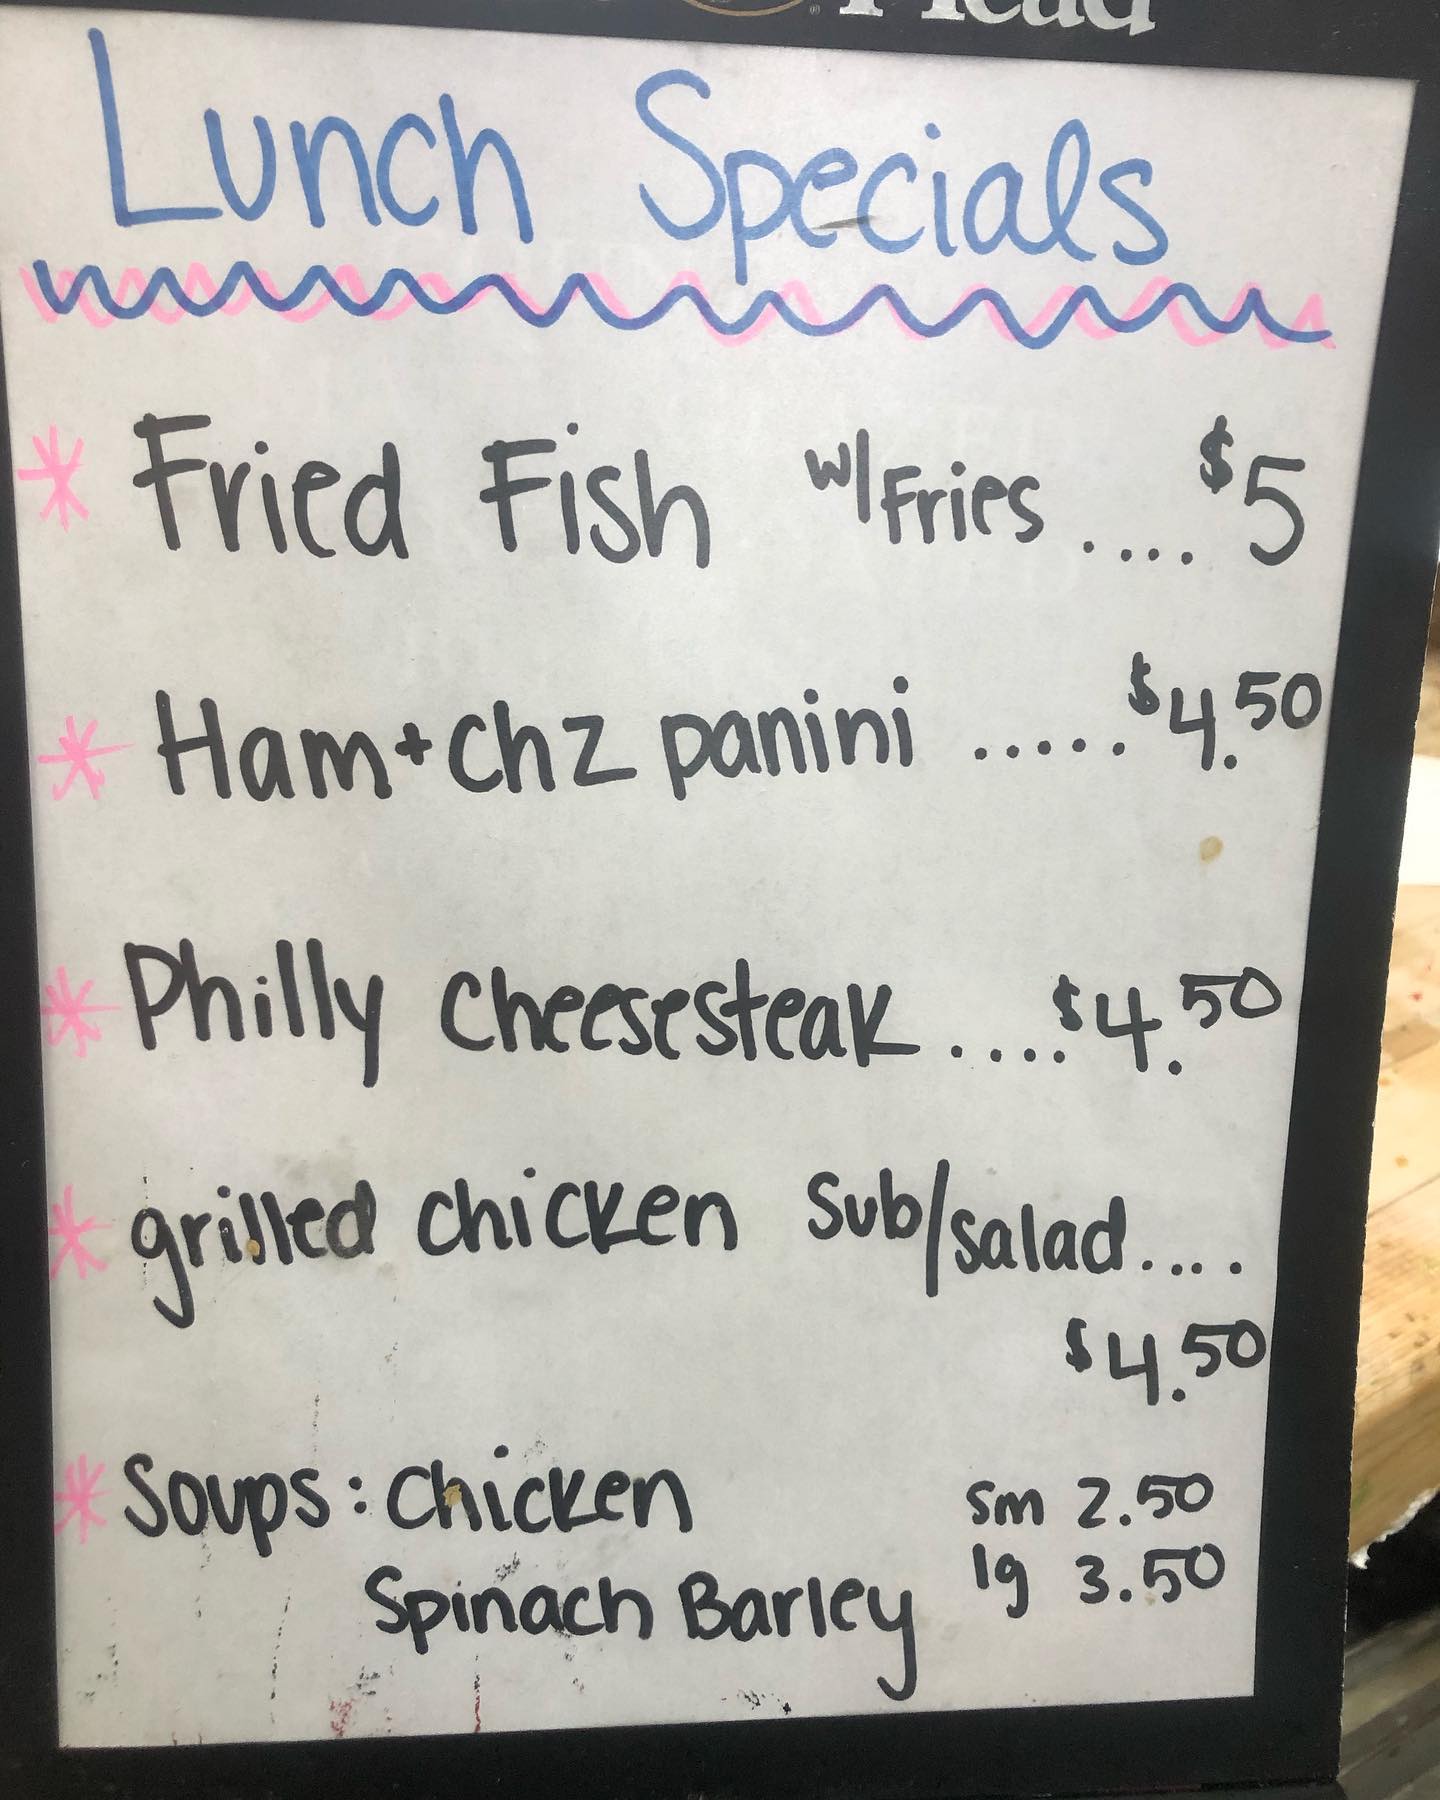 Head
Lunch Specials
* Fried Fish w/Fries .... $5
* Ham + chz panini ..... $4.50
* Philly cheesesteak .... $4.50
* grilled chicken sub/salad ....
$4.50
* Soups: Chicken sm 2.50
Spinach Barley lg 3.50